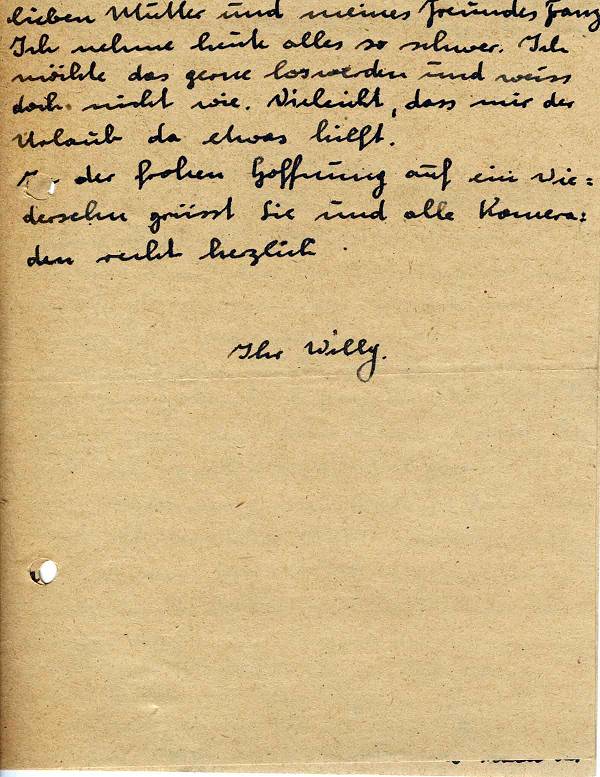 lieben Mutter und meines Freundes Franz
Ich nehme heute alles so schwer. Ich
möchte das gerne loswerden und weiss
doch nicht wie. Vieleicht, dass mir der
Urlaub da etwas hilft.
der frohen Hoffnung auf ein Wie=
dersehn grüsst Sie und alle Kamera=
den recht herzlich.
Ihr Willy.